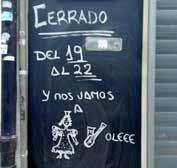 CERRADO
DEL 19
AL 22
Y NOS VAMOS
A
OLEEE